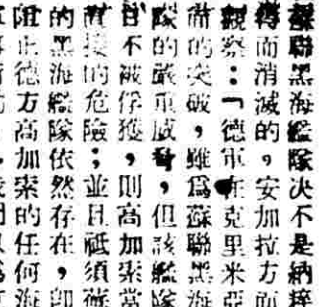 蘇聯黑海艦隊决不是納粹
得而消滅的。安加拉方面
觀察：「德軍在克里米亞
的突破，雖爲蘇聯黑海
隊的嚴重威脅，但該艦隊
不被俘獲，則高加索當
接的危險；並且祗須蘇
的黑海艦隊依然存在，即
阻止德方高加索的任何海